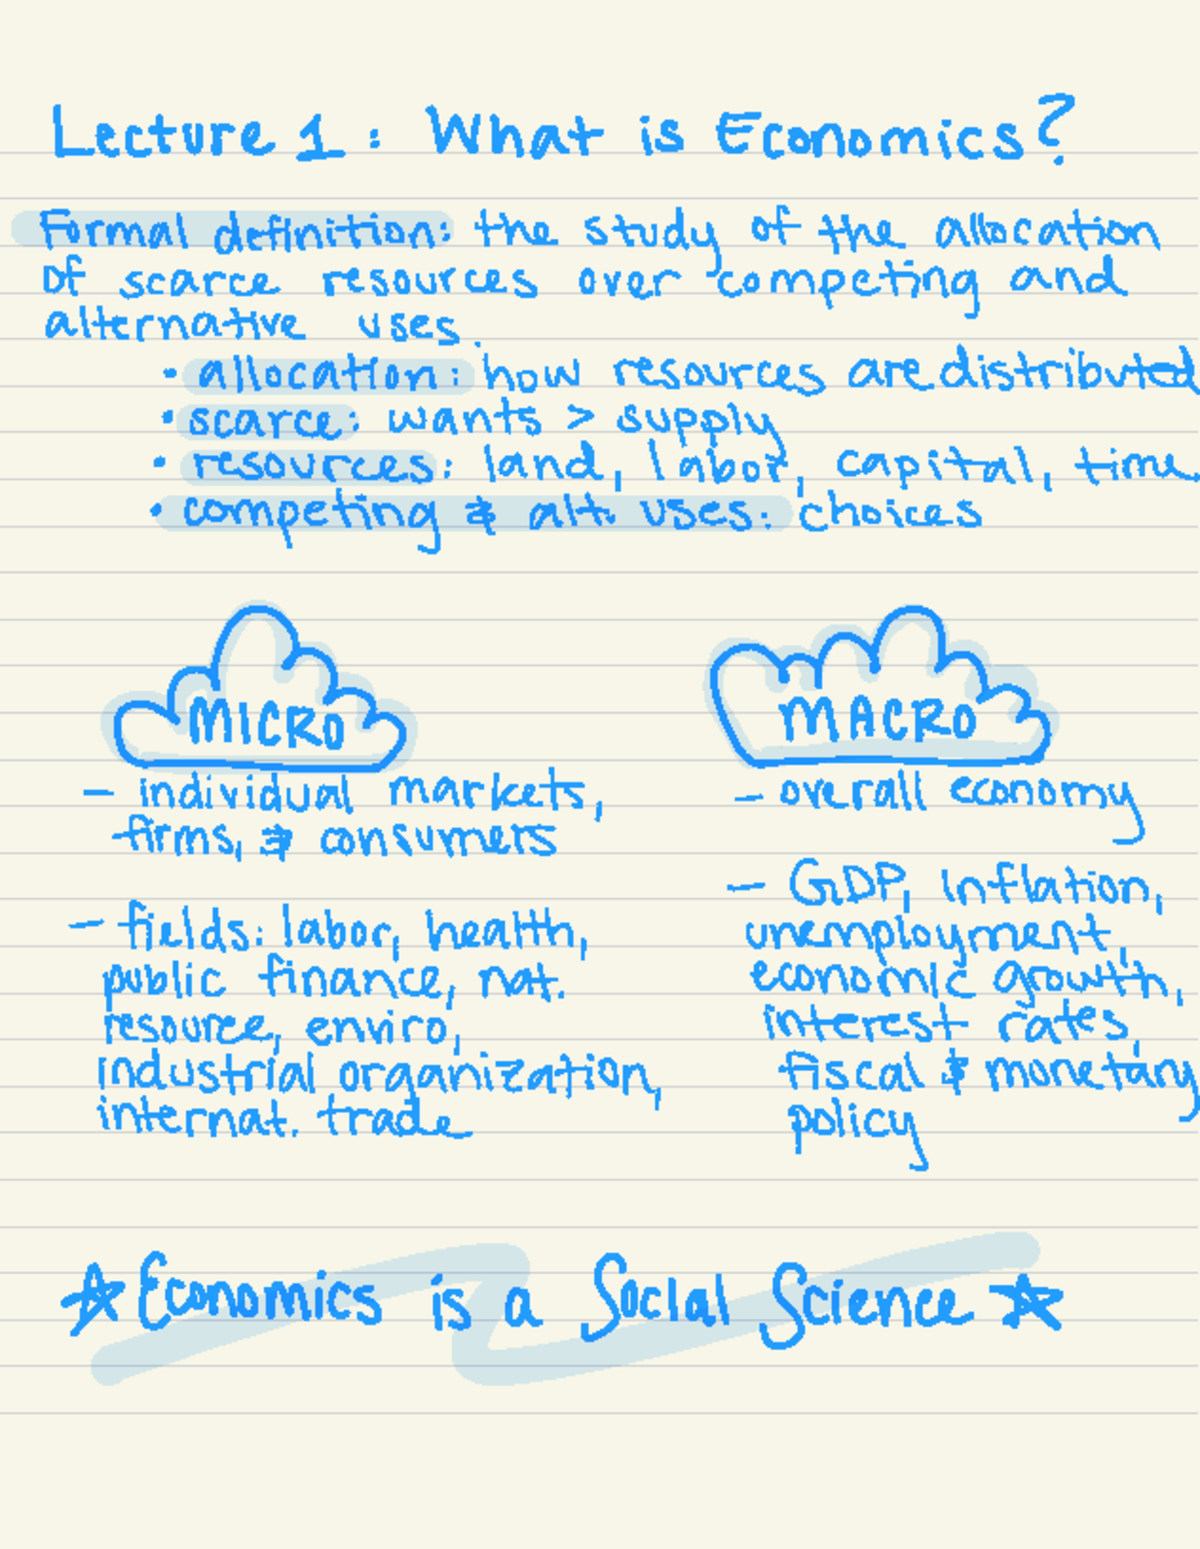 Lecture 1: What is Economics?
Formal definition: the study of the allocation
of scarce resources over competing and
alternative uses.
• allocation: how resources are distributed
• scarce: wants > supply
• resources: land, labor, capital, time
• competing & alt. uses: choices
MICRO
– individual markets,
firms, & consumers
– fields: labor, health,
public finance, nat.
resource, enviro,
industrial organization,
internat. trade
MACRO
– overall economy
– GDP, inflation,
unemployment,
economic growth,
interest rates,
fiscal & monetary
policy
☆ Economics is a Social Science ☆